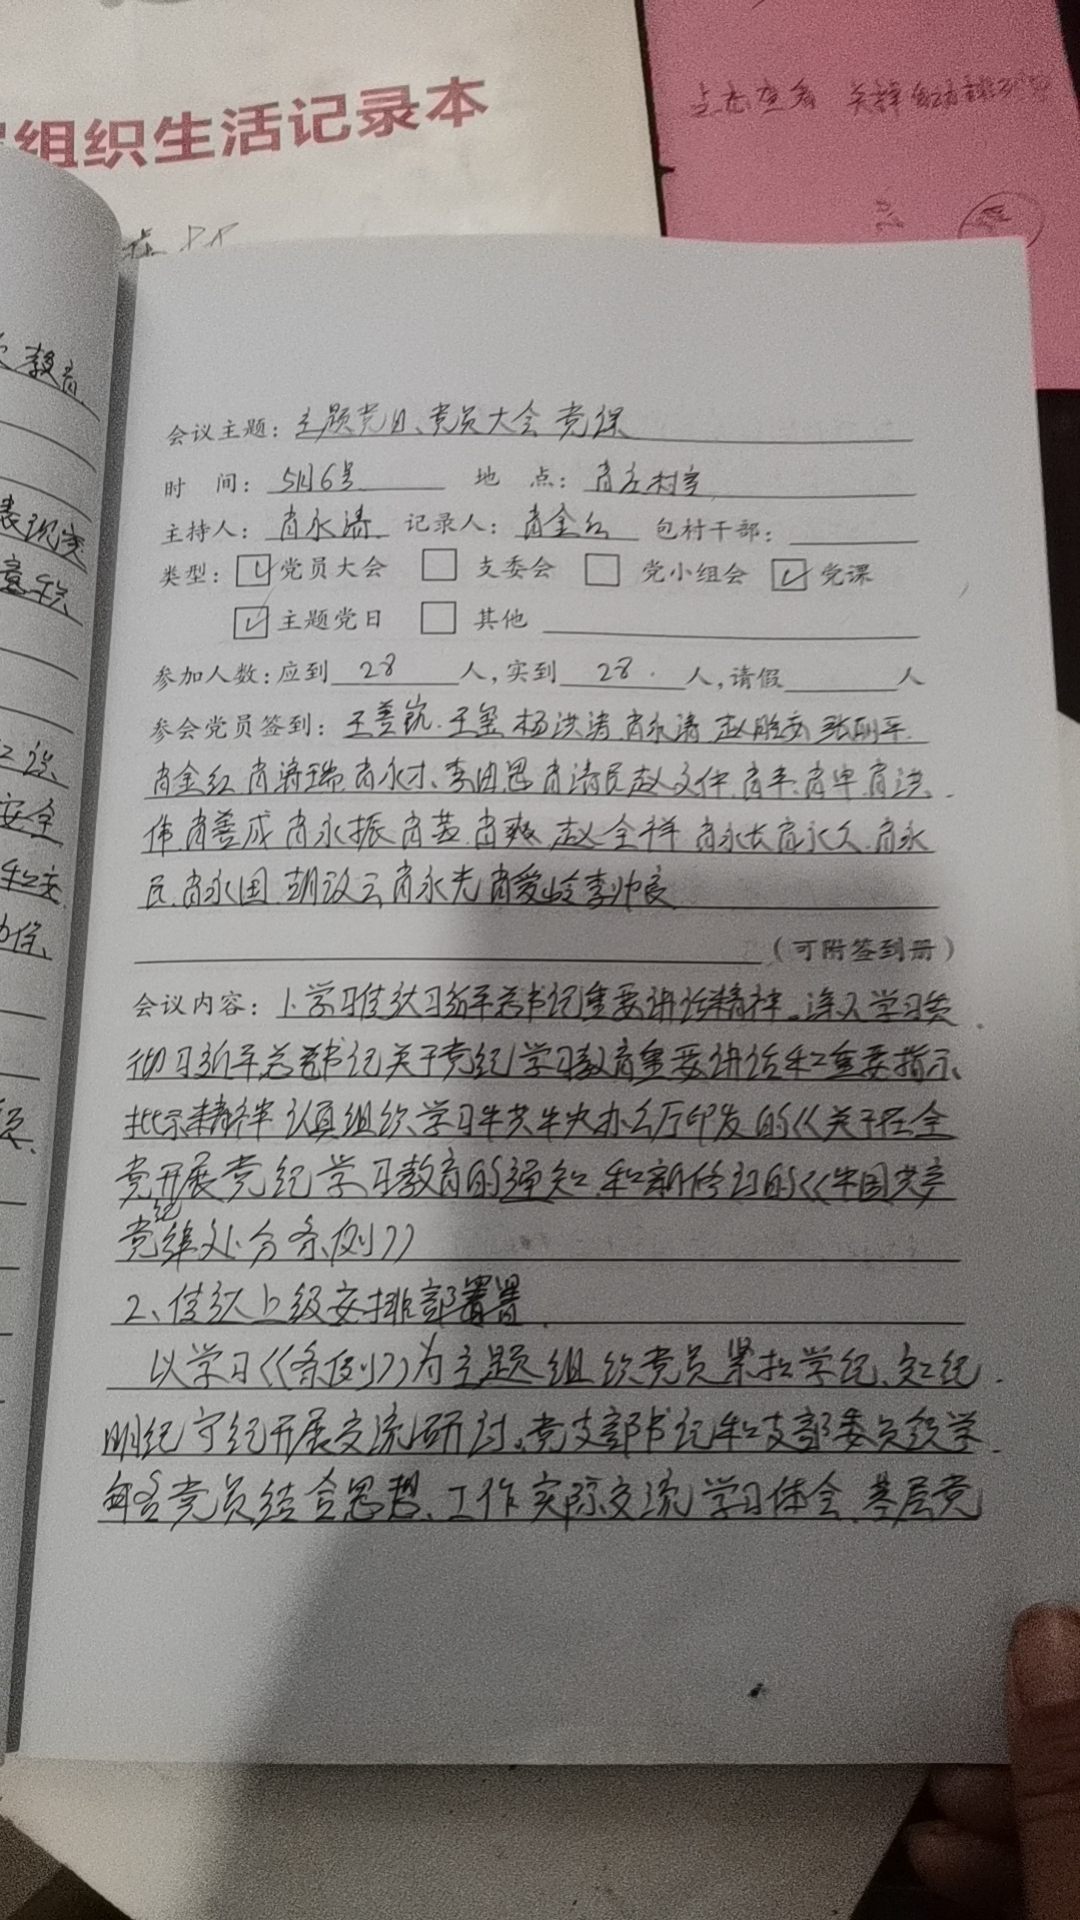 组织生活记录本
教育
会议主题：主题党日、党员大会 党课
时 间：5月6号 地 点：肖庄村室
主持人：肖永涛 记录人：肖金红 包村干部：
类型：☑党员大会 □ 支委会 □ 党小组会 ☑ 党课
☑ 主题党日 □ 其他
参加人数：应到 28 人，实到 28 人，请假 人
参会党员签到：王玺 杨洪涛 肖永涛
肖金红 肖永才、肖清民 赵文仲 肖丰 肖洪
伟 肖善成 肖永振 肖爽 赵全祥 肖永长 肖永久 肖永
民 肖永国 肖永光 肖爱岭 李帅良
（可附签到册）
会议内容：1、学习传达习近平总书记重要讲话精神。深入学习贯
彻习近平总书记关于党纪学习教育重要讲话和重要指示、
批示精神 认真组织学习中共中央办公厅印发的《关于在全
党开展党纪学习教育的通知 和新修订的《中国共产
党纪律处分条例》
2、传达上级安排部署
以学习《条例》为主题 组织党员 紧扣学纪、知纪
明纪 守纪开展交流研讨。党支部书记和支部委员领学
每名党员结合思想、工作实际交流学习体会、基层党